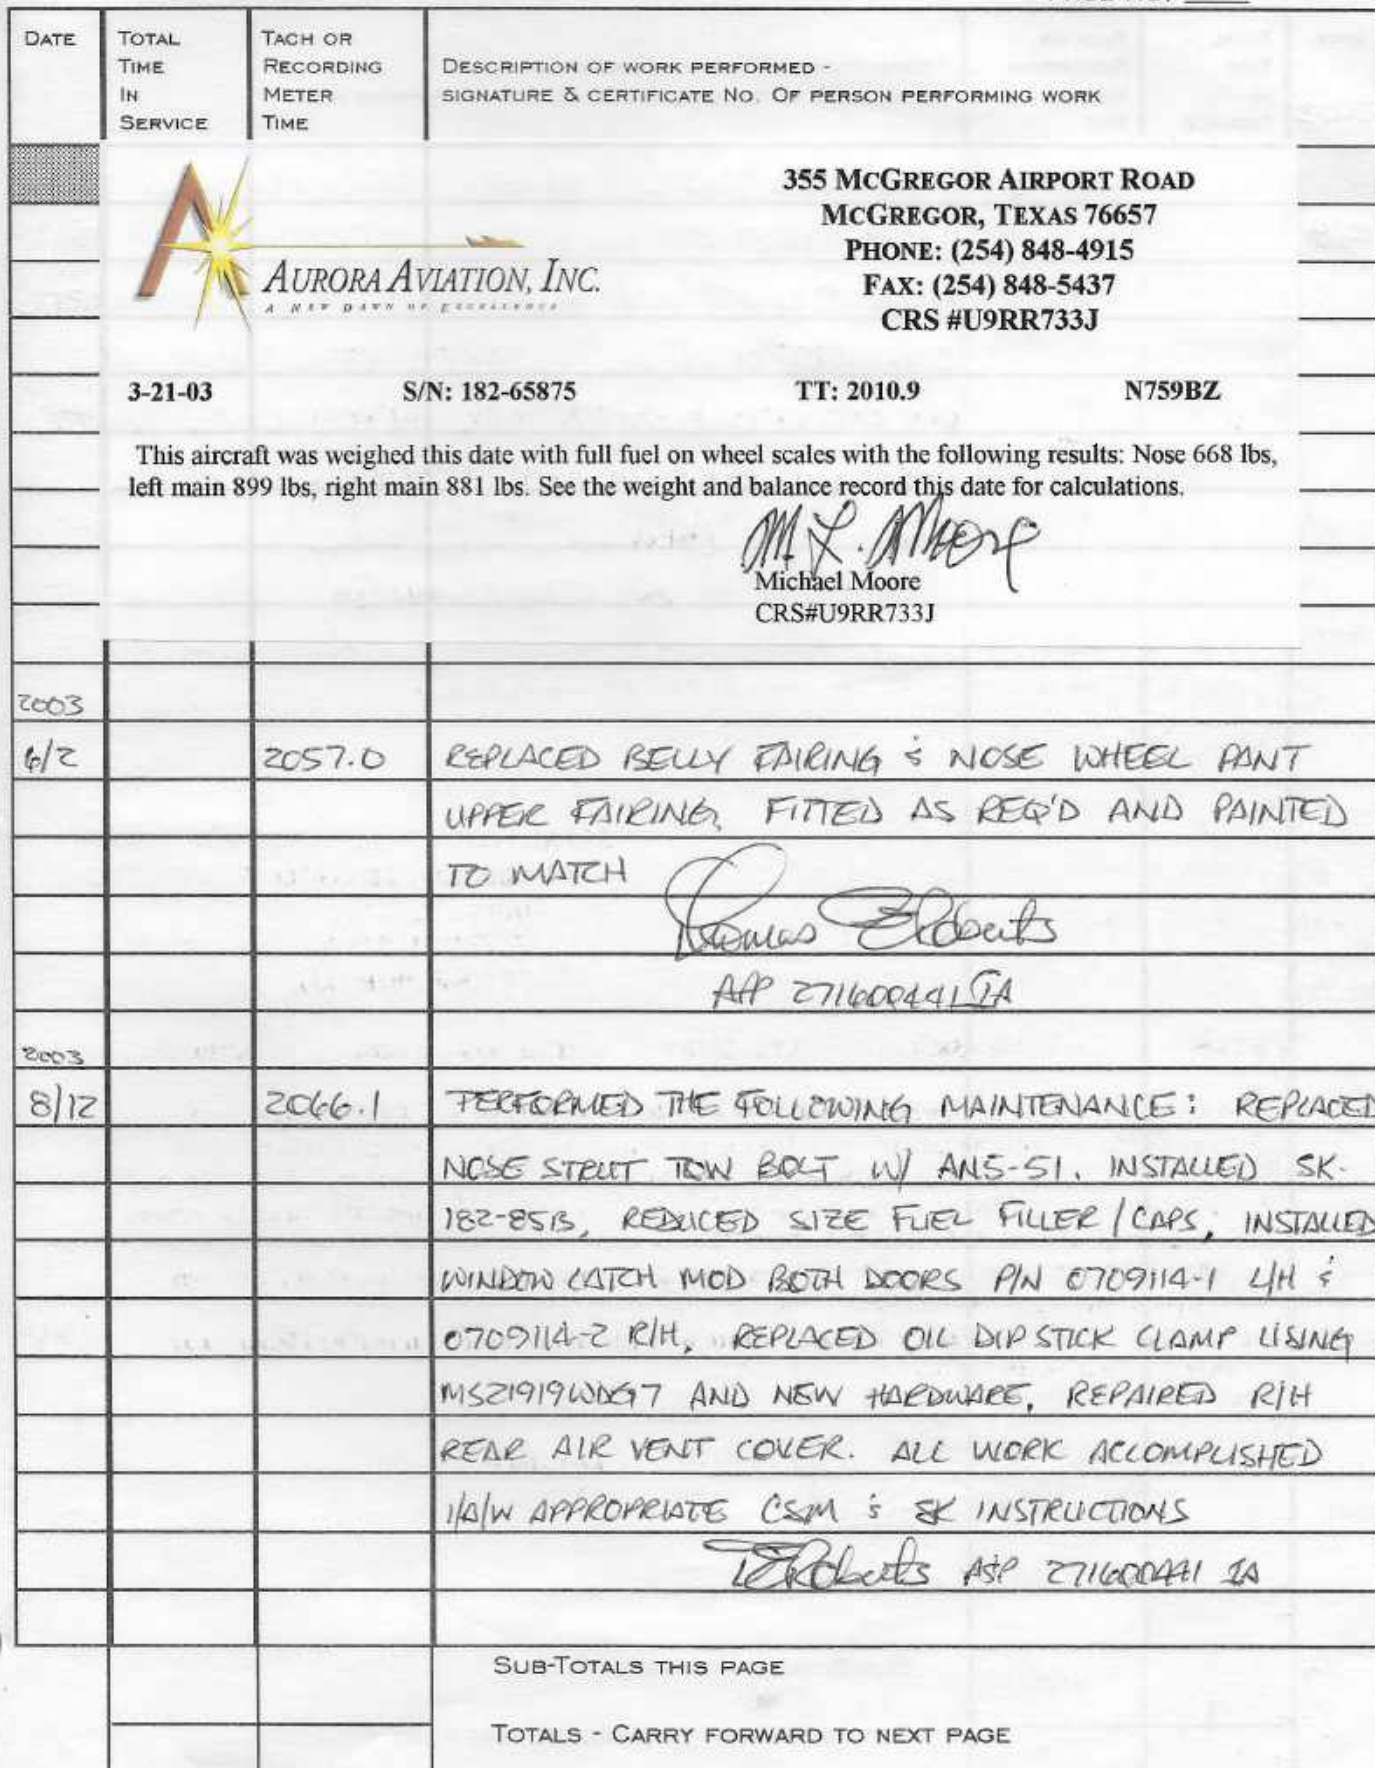 DATE
TOTAL
TIME
IN
SERVICE
TACH OR
RECORDING
METER
TIME
DESCRIPTION OF WORK PERFORMED -
SIGNATURE & CERTIFICATE NO. OF PERSON PERFORMING WORK
AURORA AVIATION, INC.
A NEW DAWN OF EXCELLENCE
355 MCGREGOR AIRPORT ROAD
MCGREGOR, TEXAS 76657
PHONE: (254) 848-4915
FAX: (254) 848-5437
CRS #U9RR733J
3-21-03 S/N: 182-65875 TT: 2010.9 N759BZ
This aircraft was weighed this date with full fuel on wheel scales with the following results: Nose 668 lbs,
left main 899 lbs, right main 881 lbs. See the weight and balance record this date for calculations.
M. L. Moore
Michael Moore
CRS#U9RR733J
2003
6/2 2057.0 REPLACED BELLY FAIRING & NOSE WHEEL PANT
UPPER FAIRING, FITTED AS REQ'D AND PAINTED
TO MATCH
Thomas E Roberts
A&P 271600441 IA
2003
8/12 2066.1 PERFORMED THE FOLLOWING MAINTENANCE: REPLACED
NOSE STRUT TOW BOLT W/ AN5-51. INSTALLED SK-
182-85B, REDUCED SIZE FUEL FILLER/CAPS, INSTALLED
WINDOW LATCH MOD BOTH DOORS P/N 0709114-1 L/H &
0709114-2 R/H, REPLACED OIL DIPSTICK CLAMP USING
MS21919WDG7 AND NEW HARDWARE, REPAIRED R/H
REAR AIR VENT COVER. ALL WORK ACCOMPLISHED
I/A/W APPROPRIATE CSM & SK INSTRUCTIONS
TE Roberts A&P 271600441 IA
SUB-TOTALS THIS PAGE
TOTALS - CARRY FORWARD TO NEXT PAGE